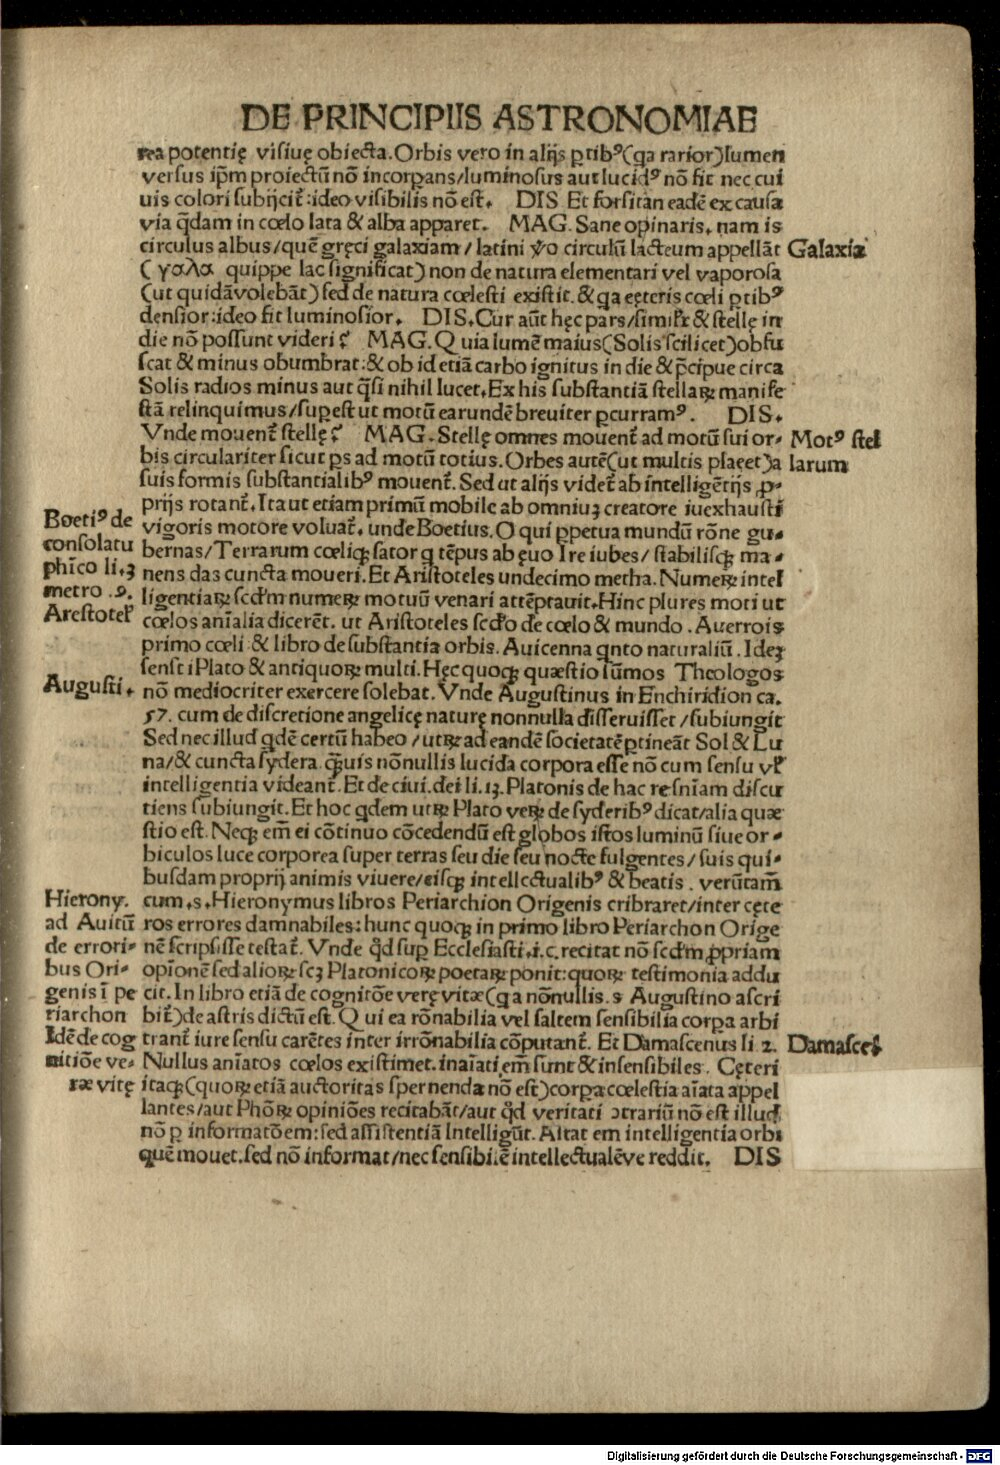 DE PRINCIPIIS ASTRONOMIAE
rea potentię visiuę obiecta. Orbis vero in alijs ꝑtibꝰ(ꝗa rarior)lumen
versus ip̄m proiectū nō incorꝑans/luminosus aut lucidꝰ nō fit nec cui
uis colori subijcit᷑:ideo visibilis nō est. DIS Et forsitan eadē ex causa
via q̄dam in cœlo lata & alba apparet. MAG. Sane opinaris. nam is
circulus albus/quē gręci galaxiam/ latini ṽo circulū lacteum appellāt
Galaxia
( γαλα quippe lac significat) non de natura elementari vel vaporosa
(ut quidā volebāt) sed de natura cœlesti existit. & ꝗa cęteris cœli ꝑtibꝰ
densior:ideo fit luminosior. DIS. Cur aūt hęc pars/simil᷑r & stellę in
die nō possunt videri ? MAG. Quia lumē maius(Solis scilicet)obfu
scat & minus obumbrat:& ob id etiā carbo ignitus in die & p̄cipue circa
Solis radios minus aut q̄si nihil lucet. Ex his substantiā stellaꝝ manife
stā relinquimus/suꝑest ut motū earundē breuiter ꝑcurramꝰ. DIS.
Vnde mouent᷑ stellę ? MAG. Stellę omnes mouent᷑ ad motū sui or-
Motꝰ stel
bis circulariter sicut ꝑs ad motū totius. Orbes autē(ut multis placet)a
larum
suis formis substantialibꝰ mouent᷑. Sed ut alijs videt᷑ ab intelligētijs ꝓ-
prijs rotant᷑. Ita ut etiam primū mobile ab omniuꝫ creatore iuexhausti
Boetiꝰ de
vigoris motore voluat᷑. unde Boetius. O qui ꝑpetua mundū rōne gu-
consolatu
bernas/Terrarum cœliqꝫ sator ꝗ tēpus ab ęuo Ire iubes/ stabilisqꝫ ma-
phīco li.3
nens das cuncta moueri. Et Aristoteles undecimo metha. Numeꝝ intel
metro .9.
ligentiaꝝ scd'm numeꝝ motuū venari attēptauit. Hinc plures moti ut
Arestotel᷑
cœlos anīalia dicerēt. ut Aristoteles scd'o de cœlo & mundo. Auerrois
primo cœli & libro de substantia orbis. Auicenna qnto naturaliū. Ideꝫ
senset i Plato & antiquoꝝ multi. Hęc quoqꝫ quæstio sūmos Theologos
Augusti.
nō mediocriter exercere solebat. Vnde Augustinus in Enchiridion ca.
57. cum de discretione angelicę naturę nonnulla disseruisset/subiungit
Sed nec illud ꝗdē certū habeo /utꝝ ad eandē societatē ꝑtineāt Sol & Lu
na/& cuncta sydera. q̄uis nōnullis lucida corpora esse nō cum sensu vl᷑
intelligentia videant᷑. Et de ciui. dei li. 13. Platonis de hac re sn̄iam discu
tiens subiungit. Et hoc ꝗdem utꝝ Plato veꝝ de syderibꝰ dicat/alia quæ
stio est. Neqꝫ em̄ ei cōtinuo cōcedendū est globos istos luminū siue or-
biculos luce corporea super terras seu die seu nocte fulgentes/ suis qui-
busdam proprij animis viuere/eisqꝫ intellectualibꝰ & beatis. verūtam̄
Hierony.
cum .s. Hieronymus libros Periarchion Origenis cribraret/inter cęte
ad Auitū
ros errores damnabiles:hunc quoqꝫ in primo libro Periarchon Orige
de errori-
nē scripsisse testat᷑. Vnde q̄d suꝑ Ecclesiasti.i.c. recitat nō scd'm ꝓpriam
bus Ori-
opīonē sed alioꝝ scꝫ Platonicoꝝ poetaꝝ ponit:quoꝝ testimonia addu
genis ī pe
cit. In libro etiā de cognitōe verę vitæ(ꝗ a nōnullis .s Augustino ascri
riarchon
bit᷑)de astris dictū est. Qui ea rōnabilia vel saltem sensibilia corꝑa arbi
Idē de cog
trant᷑ iure sensu carētes inter irrōnabilia cōputant᷑. Et Damascenus li. 2.
Damascel᷑
nitiōe ve-
Nullus anīatos cœlos existimet. inaīati em̄ sunt & insensibiles. Cęteri
ræ vitę
itaqꝫ(quoꝝ etiā auctoritas spernenda nō est)corꝑa cœlestia aīata appel
lantes/aut Phōꝝ opiniōes recitabāt/aut q̄d veritati ↄtrariū nō est illud
nō ꝑ informatōem:sed assistentiā Intelligūt. Altat em intelligentia orbi
quē mouet. sed nō informat/nec sensibi.ē intellectualēve reddit. DIS
Digitalisierung gefördert durch die Deutsche Forschungsgemeinschaft - DFG